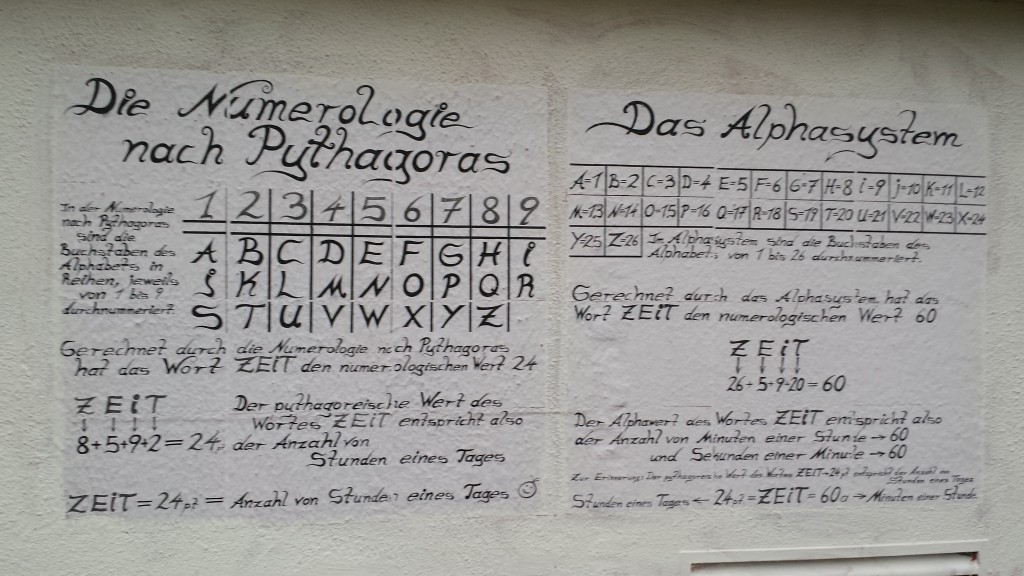 Die Numerologie
nach Pythagoras
In der Numerologie
nach Pythagoras
sind die
Buchstaben des
Alphabets in
Reihen, jeweils
von 1 bis 9
durchnummeriert.
1 2 3 4 5 6 7 8 9
A B C D E F G H i
J K L M N O P Q R
S T U V W X Y Z
Gerechnet durch die Numerologie nach Pythagoras
hat das Wort ZEiT den numerologischen Wert 24
Z E i T
↓ ↓ ↓ ↓
8+5+9+2=24
Der pythagoreische Wert des
Wortes ZEiT entspricht also
der Anzahl von
Stunden eines Tages
ZEiT=24pt= Anzahl von Stunden eines Tages ☺
Das Alphasystem
A=1 B=2 C=3 D=4 E=5 F=6 G=7 H=8 i=9 J=10 K=11 L=12
M=13 N=14 O=15 P=16 Q=17 R=18 S=19 T=20 U=21 V=22 W=23 X=24
Y=25 Z=26 Im Alphasystem sind die Buchstaben des
Alphabets von 1 bis 26 durchnummeriert.
Gerechnet durch das Alphasystem hat das
Wort ZEiT den numerologischen Wert 60
Z E i T
↓ ↓ ↓ ↓
26+5+9+20=60
Der Alphawert des Wortes ZEiT entspricht also
der Anzahl von Minuten einer Stunde → 60
und Sekunden einer Minute → 60
Zur Erinnerung: Der pythagoreische Wert des Wortes ZEiT=24pt entspricht der Anzahl von
Stunden eines Tages
Stunden eines Tages ← 24pt=ZEiT=60a → Minuten einer Stunde